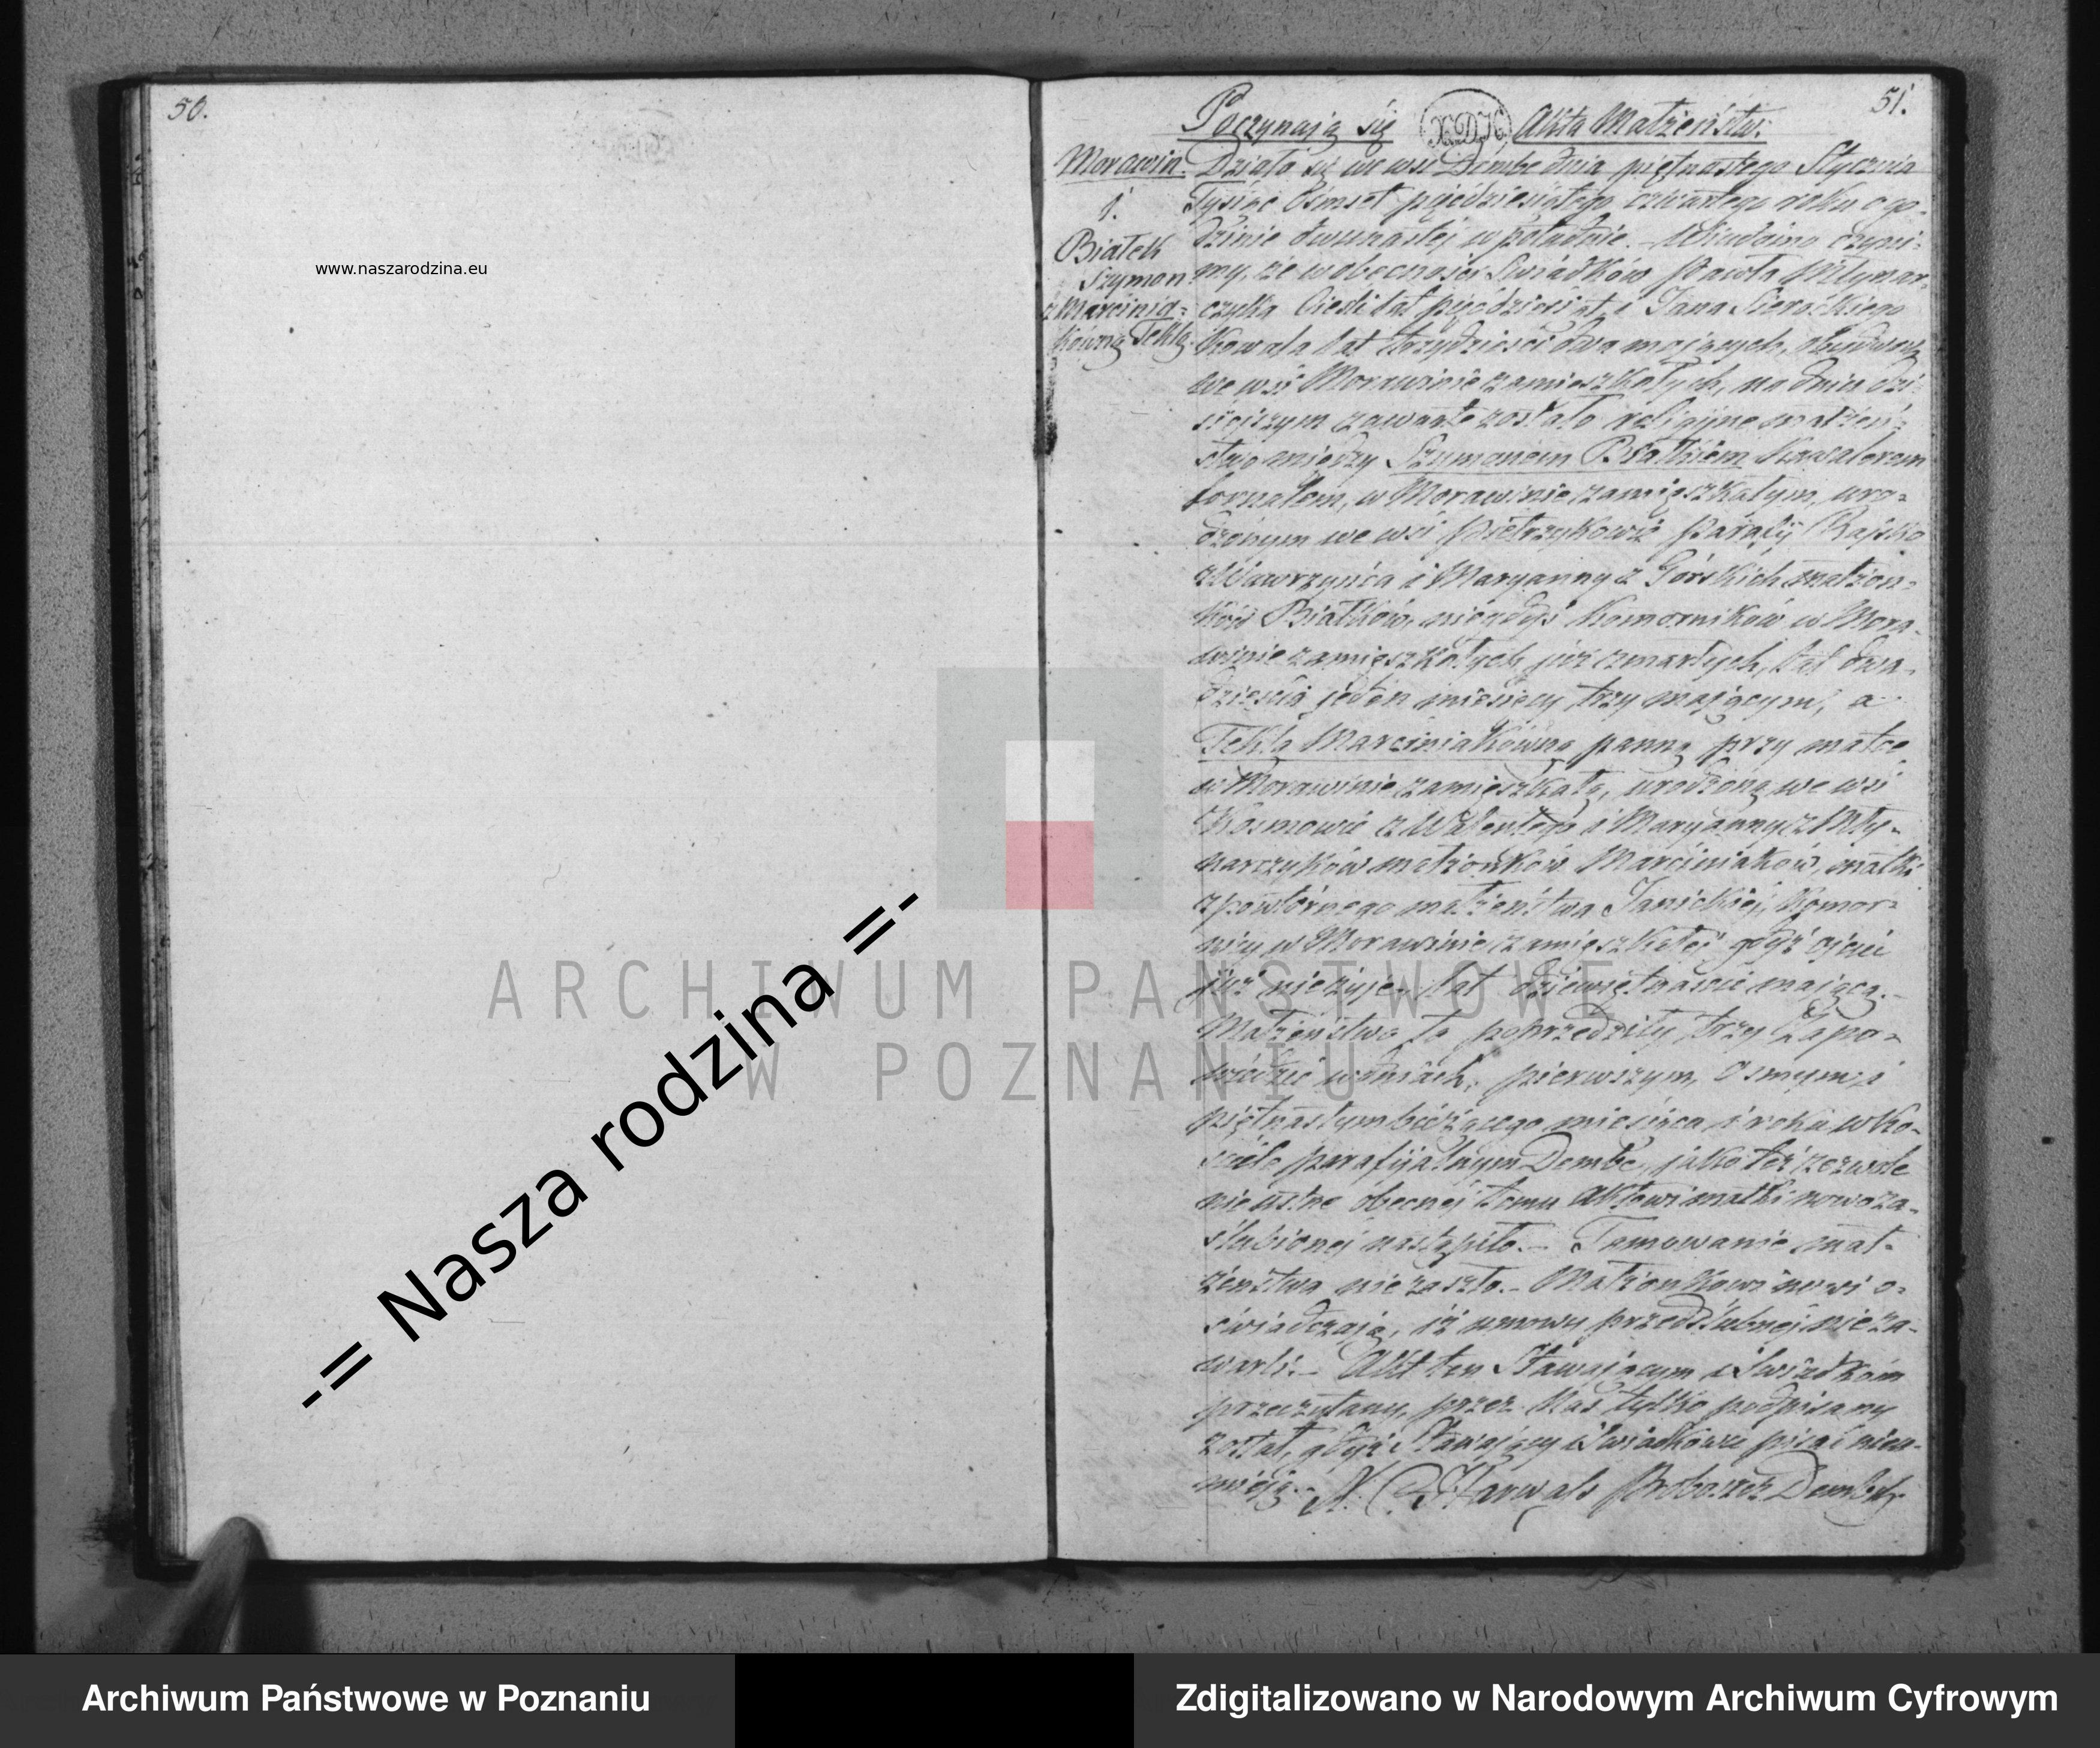 50.
www.naszarodzina.eu
-= Nasza rodzina =-
51.
Poczynają się Akta Małżeństw.
Morawin.
1.
Białek
Szymon
z Marcinia-
kówną Teklą.
Działo się we wsi Dembe dnia piętnastego Stycznia
Tysiąc Ośmset pięćdziesiątego czwartego roku o go-
dzinie dwunastej w południe. – Wiadomo czyni-
my, że w obecności Świadków Pawła Młynar-
czyka Cieśli lat pięćdziesiąt i Jana Sierockiego
Kowala lat trzydzieści dwa mających, obudwóch
we wsi Morawinie zamieszkałych, na dniu dzi-
siejszym zawarte zostało religijne małżeń-
stwo między Szymonem Białkiem Kawalerem
fornalem, w Morawinie zamięszkałym, uro-
dzonym we wsi Pietrzykowie Parafij Rajsko
z Wawrzyńca i Maryanny z Górskich małżon-
ków Białków, niegdyś Komorników w Mora-
winie zamięszkałych już zmarłych, lat dwa-
dzieścia jeden miesięcy trzy mającym, a
Teklą Marciniakówną panną przy matce
w Morawinie zamięszkałą, urodzoną we wsi
Kosmowie z Walentego i Maryanny z Mły-
narczyków małżonków Marciniaków, matki
z powtórnego małżeństwa Janickiej, Komor-
nicy w Morawinie zamięszkałej gdyż ojciec
już nie żyje, lat dziewiętnaście mającą. –
Małżeństwo to poprzedziły trzy Zapo-
wiedzie w dniach, pierwszym, Osmym i
piętnastym bieżącego miesiąca i roku w Ko-
ściele parafijalnym Dembe, jako też zezwole
nie ustne obecnej temu Aktowi matki nowoza-
ślubionej nastąpiło. – Tamowanie mał-
żeństwa nie zaszło. – Małżonkowie nowi o-
świadczają, iż umowy przedślubnej nie za-
warli. – Akt ten Stawającym i Świadkom
przeczytany, przez Nas tylko podpisany
został, gdyż Stawający i Świadkowie pisać nieu-
mieją. – X. Proboszcz Dembski
ARCHIWUM PAŃSTWOWE
W POZNANIU
Archiwum Państwowe w Poznaniu
Zdigitalizowano w Narodowym Archiwum Cyfrowym